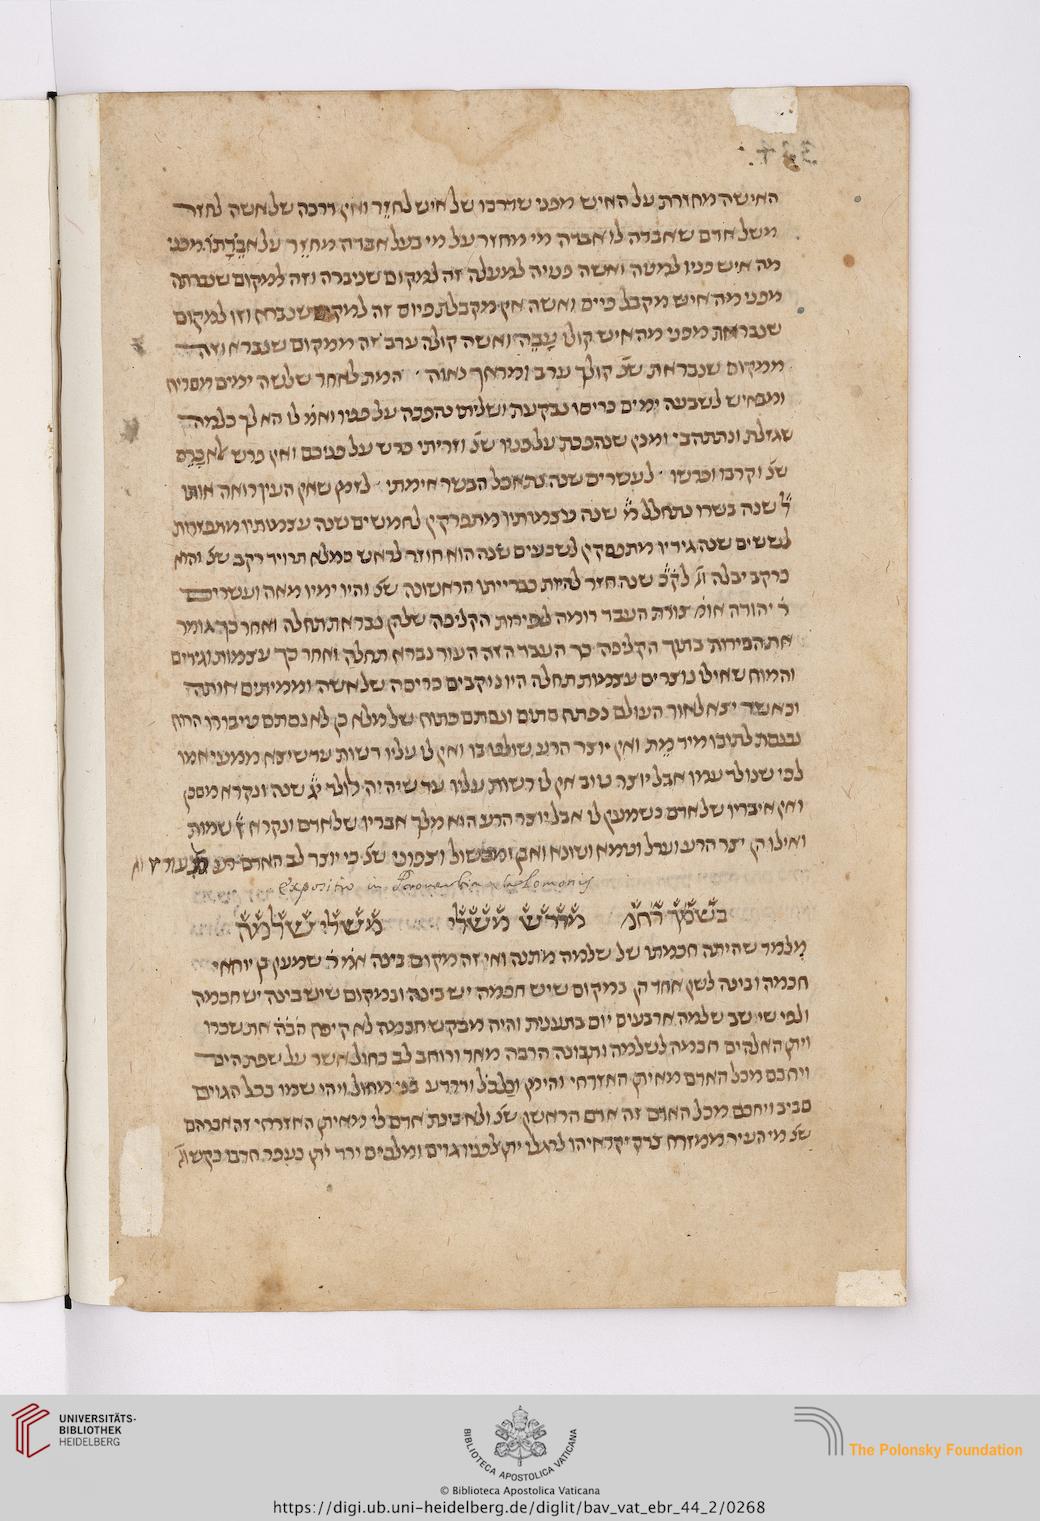 האישה מחזרת על האיש מפני שדרכו של איש לחזר ואין דרכה של אשה לחזר
משל אדם שאבדה לו אבדה מי מחזר על מי בעל אבדה מחזר על אבדתו מפני
מה איש פניו למטה ואשה פניה למעלה זה למקום שניברה וזה למקום שנבראת
מפני מה איש מקבל פיים ואשה אין מקבלת פיוס זה למקום שנברא וזו למקום
שנבראת מפני מה איש קולו עבה ואשה קולה ערב זה ממקום שנברא וזה
ממקום שנבראת שנ׳ קולך ערב ומראך נאוה המת לאחר שלשה ימים מסריח
ומבאיש לשבעה ימים כריסו נבקעת ושליתו נהפכה על פניו ואומ׳ לו הא לך כל מה
שגזלת ונתתה בי ומנין שנהפכת על פניו שנ׳ וזריתי פרש על פניכם ואין פרש אלא כרס
שנ׳ וקרבו ופרשו לעשרים שנה נתאכל הבשר אימתי לזמן שאין העין רואה אותו
ל׳ שנה בשרו נתחלל מ׳ שנה עצמותיו מתפרקין לחמשים שנה עצמותיו מתפזרות
לששים שנה גידיו מתפסקין לשבעים שנה הוא חוזר לראש כמלא תרויד רקב שנ׳ והוא
כרקב יבלה וג׳ לק״כ שנה חזר להיות כברייתו הראשונה שנ׳ והיו ימיו מאה ועשרים
ר׳ יהודה אומ׳ צורת העבר דומה לפירות הקליפה שלהן נבראת תחלה ואחר כך גומר
את הפירות בתוך הקליפה כך העבר הזה העור נברא תחלה ואחר כך עצמות וגידים
והמוח שאילו נוצרים עצמות תחלה היו נוקבים כריסה של אשה וממיתים אותה
וכאשר יצא לאור העולם נפתח סתום ונסתם פתוח שלמלא כן לא נסתם טיבורו הרוח
נכנסת לתוכו מיד מת ואין יוצר הרע שולט בו ואין לו עליו רשות עד שיצא ממעי אמו
לפי שנולד עמו אבל יוצר טוב אין לו רשות עליו עד שיהיה לולד יג שנה ונקרא מסכן
ואין איבריו של אדם נשמעין לו אבל יוצר הרע הוא מלך אבריו של אדם ונקרא ז׳ שמות
ואילו הן יצר הרע וערל וטמא ושונא ואבן ומכשול וצפוני שנ׳ כי יוצר לב האדם רע
expositio in Proverbia Salomonis
בשמך רחמ׳ מדרש משלי משלי שלמה
מלמד שהיתה חכמתו של שלמה מתנה ואי זה מקום בינה אמ׳ ר׳ שמעון בן יוחאי
חכמה ובינה לשון אחד הן במקום שיש חכמה יש בינה ובמקום שיש בינה יש חכמה
ולפי שישב שלמה ארבעים יום בתענית והיה מבקש חכמה לא קיפח הב״ה את שכרו
ויתן האלהים חכמה לשלמה ותבונה הרבה מאד ורוחב לב כחול אשר על שפת הים
ויחכם מכל האדם מאיתן האזרחי והימן וכלכל ודרדע בני מחול ויהי שמו בכל הגוים
סביב ויחכם מכל האדם זה אדם הראשון שנ׳ ולא בינת אדם לי מאיתן האזרחי זה אברהם
שנ׳ מי העיר ממזרח צדק יקראיהו לרגלו יתן לפניו גוים ומלכים ירד יתן כעפר חרבו כקש וג׳
UNIVERSITÄTS-
BIBLIOTHEK
HEIDELBERG
BIBLIOTECA APOSTOLICA VATICANA
The Polonsky Foundation
© Biblioteca Apostolica Vaticana
https://digi.ub.uni-heidelberg.de/diglit/bav_vat_ebr_44_2/0268